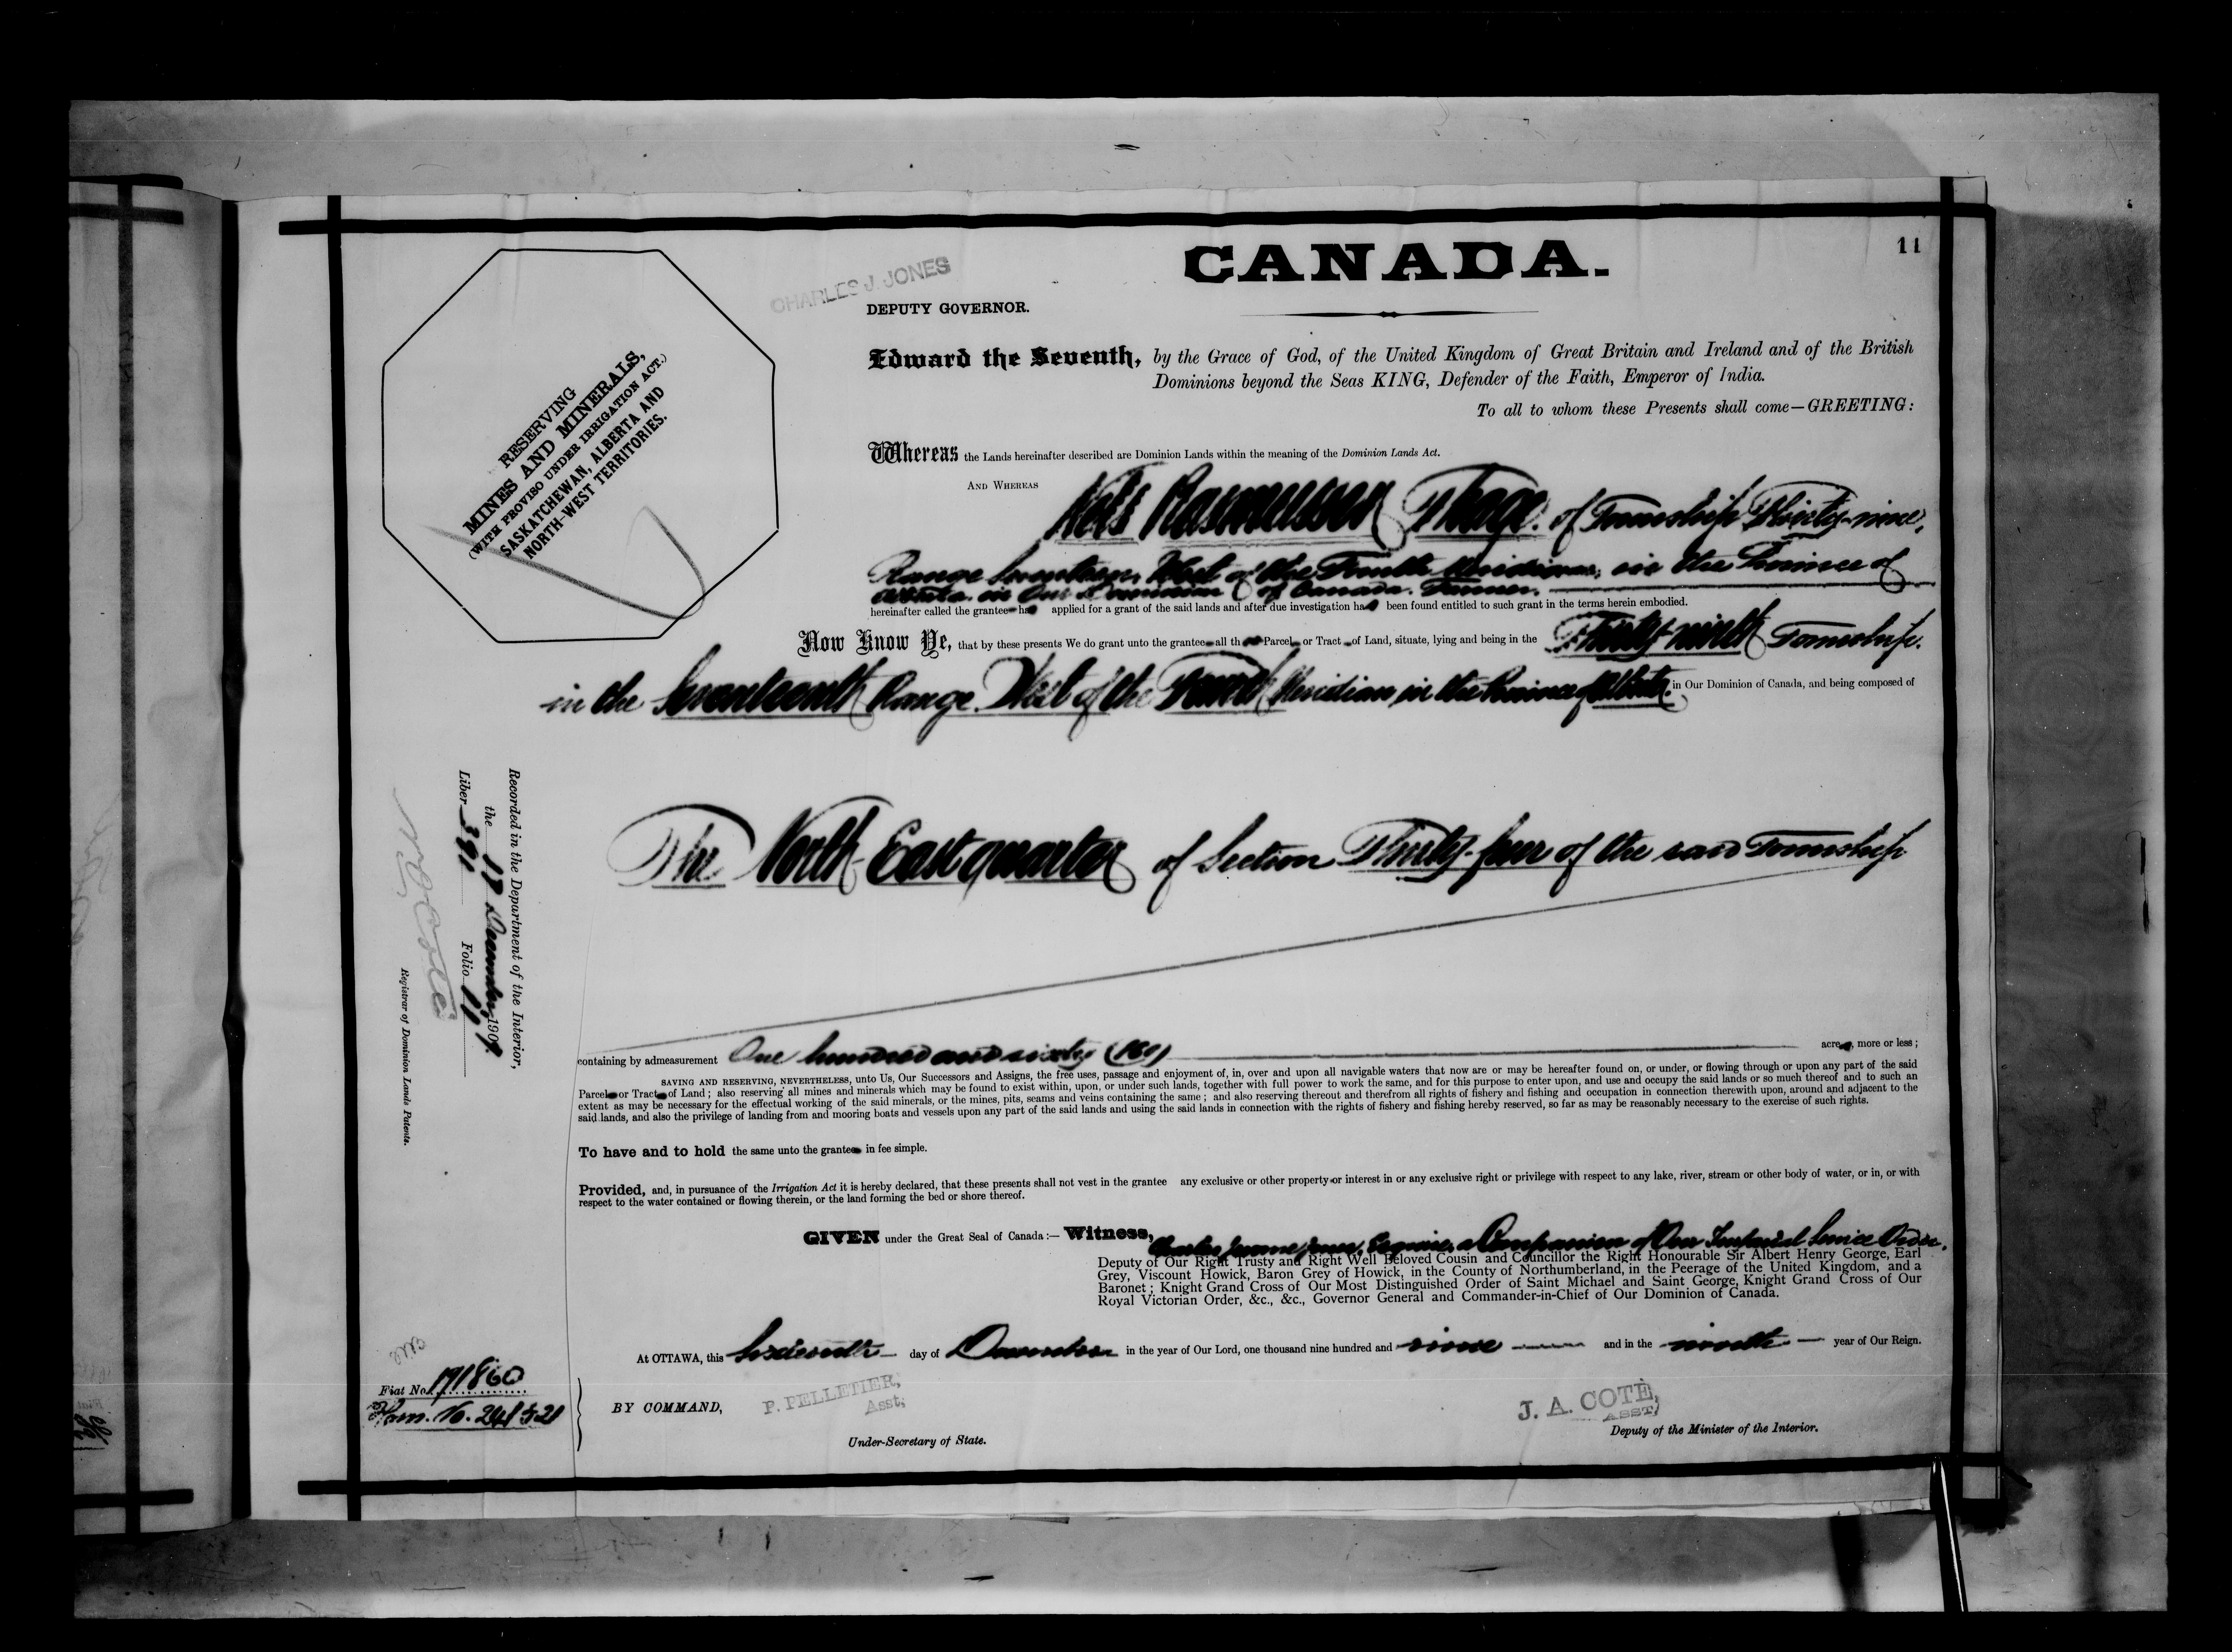 11
CANADA.
CHARLES J. JONES
DEPUTY GOVERNOR.
Edward the Seventh, by the Grace of God, of the United Kingdom of Great Britain and Ireland and of the British
Dominions beyond the Seas KING, Defender of the Faith, Emperor of India.
To all to whom these Presents shall come—GREETING:
RESERVING
MINES AND MINERALS,
(WITH PROVISO UNDER IRRIGATION ACT.)
SASKATCHEWAN, ALBERTA AND
NORTH-WEST TERRITORIES.
Whereas the Lands hereinafter described are Dominion Lands within the meaning of the Dominion Lands Act.
AND WHEREAS Nels Rasmussen of Township Thirty-nine,
Range Seventeen, West of the Fourth Meridian, in the Province of
Alberta in Our Dominion of Canada. Farmer.
hereinafter called the grantee has applied for a grant of the said lands and after due investigation has been found entitled to such grant in the terms herein embodied.
Now Know Ye, that by these presents We do grant unto the grantee all th Parcel or Tract of Land, situate, lying and being in the Thirty-ninth Township
in the Seventeenth Range West of the Fourth Meridian in the Province of Alberta in Our Dominion of Canada, and being composed of
The North East quarter of Section Thirty-four of the said Township
Recorded in the Department of the Interior,
the 17 December 1909.
Liber 391 Folio 11
Registrar of Dominion Lands Patents.
containing by admeasurement One hundred and sixty (160) acres, more or less;
SAVING AND RESERVING, NEVERTHELESS, unto Us, Our Successors and Assigns, the free uses, passage and enjoyment of, in, over and upon all navigable waters that now are or may be hereafter found on, or under, or flowing through or upon any part of the said
Parcel or Tract of Land; also reserving all mines and minerals which may be found to exist within, upon, or under such lands, together with full power to work the same, and for this purpose to enter upon, and use and occupy the said lands or so much thereof and to such an
extent as may be necessary for the effectual working of the said minerals, or the mines, pits, seams and veins containing the same; and also reserving thereout and therefrom all rights of fishery and fishing and occupation in connection therewith upon, around and adjacent to the
said lands, and also the privilege of landing from and mooring boats and vessels upon any part of the said lands and using the said lands in connection with the rights of fishery and fishing hereby reserved, so far as may be reasonably necessary to the exercise of such rights.
To have and to hold the same unto the grantee in fee simple.
Provided, and, in pursuance of the Irrigation Act it is hereby declared, that these presents shall not vest in the grantee any exclusive or other property or interest in or any exclusive right or privilege with respect to any lake, river, stream or other body of water, or in, or with
respect to the water contained or flowing therein, or the land forming the bed or shore thereof.
GIVEN under the Great Seal of Canada:— Witness, Charles Jerome Jones, Esquire, a Companion of Our Imperial Service Order,
Deputy of Our Right Trusty and Right Well Beloved Cousin and Councillor the Right Honourable Sir Albert Henry George, Earl
Grey, Viscount Howick, Baron Grey of Howick, in the County of Northumberland, in the Peerage of the United Kingdom, and a
Baronet; Knight Grand Cross of Our Most Distinguished Order of Saint Michael and Saint George, Knight Grand Cross of Our
Royal Victorian Order, &c., &c., Governor General and Commander-in-Chief of Our Dominion of Canada.
At OTTAWA, this Sixteenth day of December in the year of Our Lord, one thousand nine hundred and nine and in the ninth year of Our Reign.
Fiat No. 191860
Hom. No. 241521
BY COMMAND,
P. PELLETIER,
Asst,
Under-Secretary of State.
J. A. COTE,
ASST,
Deputy of the Minister of the Interior.